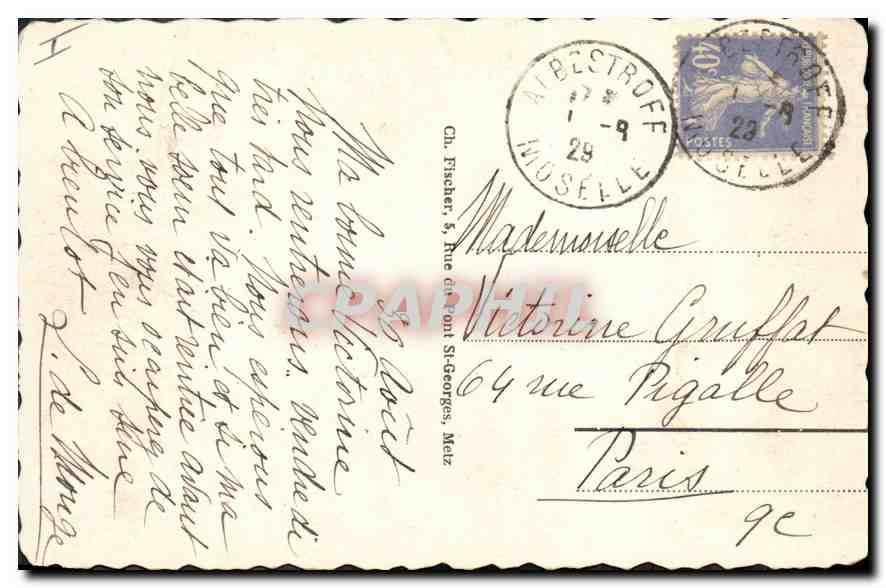 30 Août
Ma bonne Victorine
Nous rentrerons vendredi
très tard. Nous espérons
que tout va bien et si ma
belle soeur était rentrée avant
nous vous vous occuperez de
son service j'en suis sûre
A bientot
L. de Monge
Ch. Fischer, 5, Rue du Pont St-Georges, Metz
ALBESTROFF
17 *
1 -9
29
MOSELLE
40c
POSTES
ALBESTROFF
1 -9
29
MOSELLE
Mademoiselle
Victorine Gruffat
64 rue Pigalle
Paris
9e
CPAPHIL